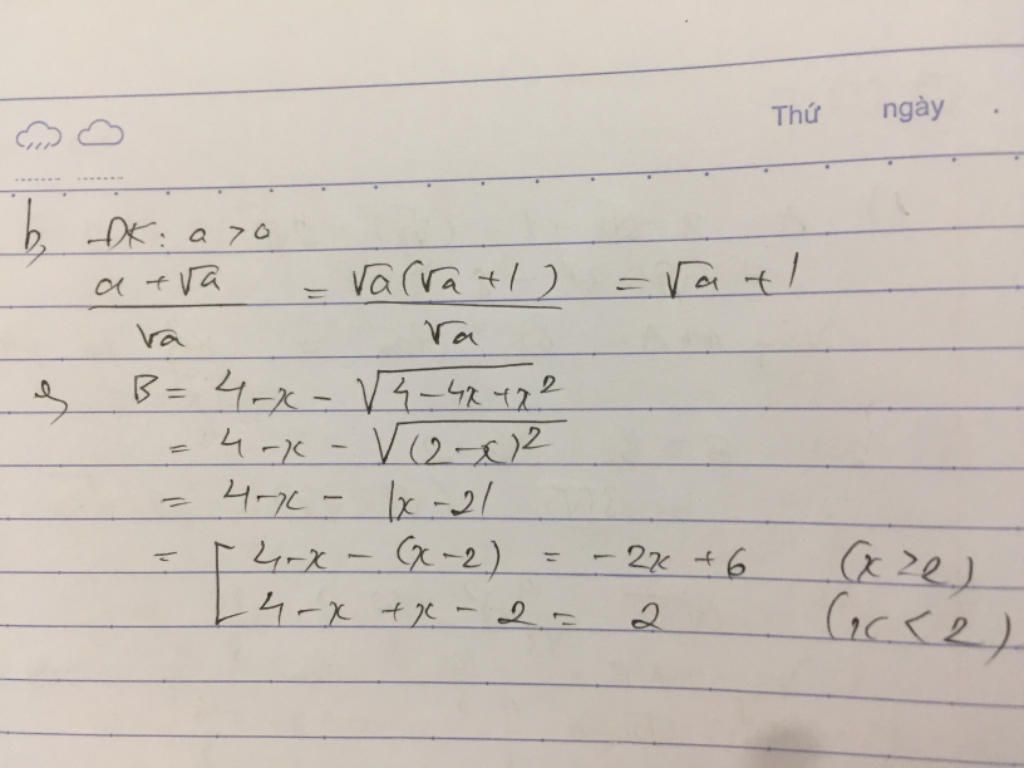 Thứ ngày .
b, ĐK: a > 0
a + √a / √a = √a(√a + 1) / √a = √a + 1
B = 4 - x - √(4 - 4x + x²)
= 4 - x - √((2 - x)²)
= 4 - x - |x - 2|
= [ 4 - x - (x - 2) = -2x + 6 (x ≥ 2)
4 - x + x - 2 = 2 (x < 2)